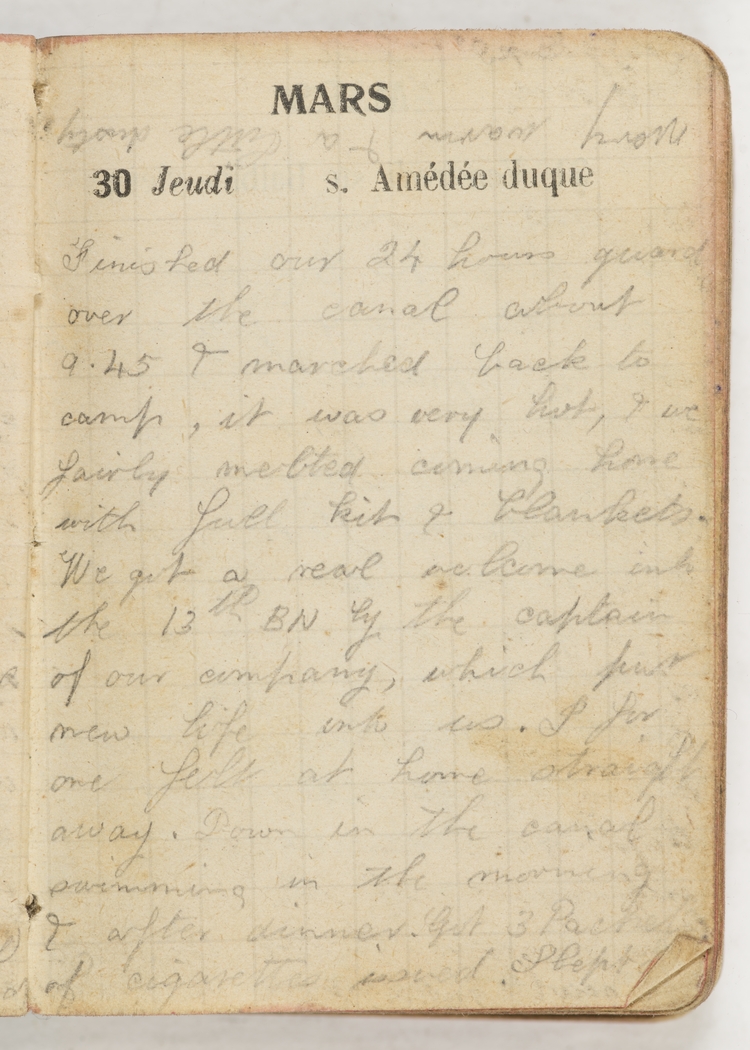 MARS
Very warm & a little dusty
30 Jeudi s. Amédée duque
Finished our 24 hours guard
over the canal about
9.45 & marched back to
camp, it was very hot, & we
fairly melted coming home
with full kit & blankets.
We got a real welcome into
the 13th BN by the captain
of our company, which put
new life into us. I for
one felt at home straight
away. Down in the canal
swimming in the morning
& after dinner. Got 3 Packets
of cigarettes issued. Slept